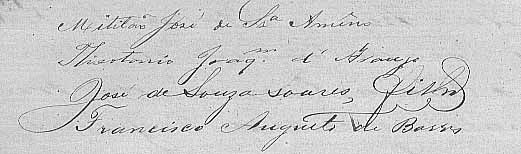 Militão José de Sza Amêno
Theotonio Joaqm. d'Araujo
José de Souza Soares, Filho
Francisco Augusto de Barros